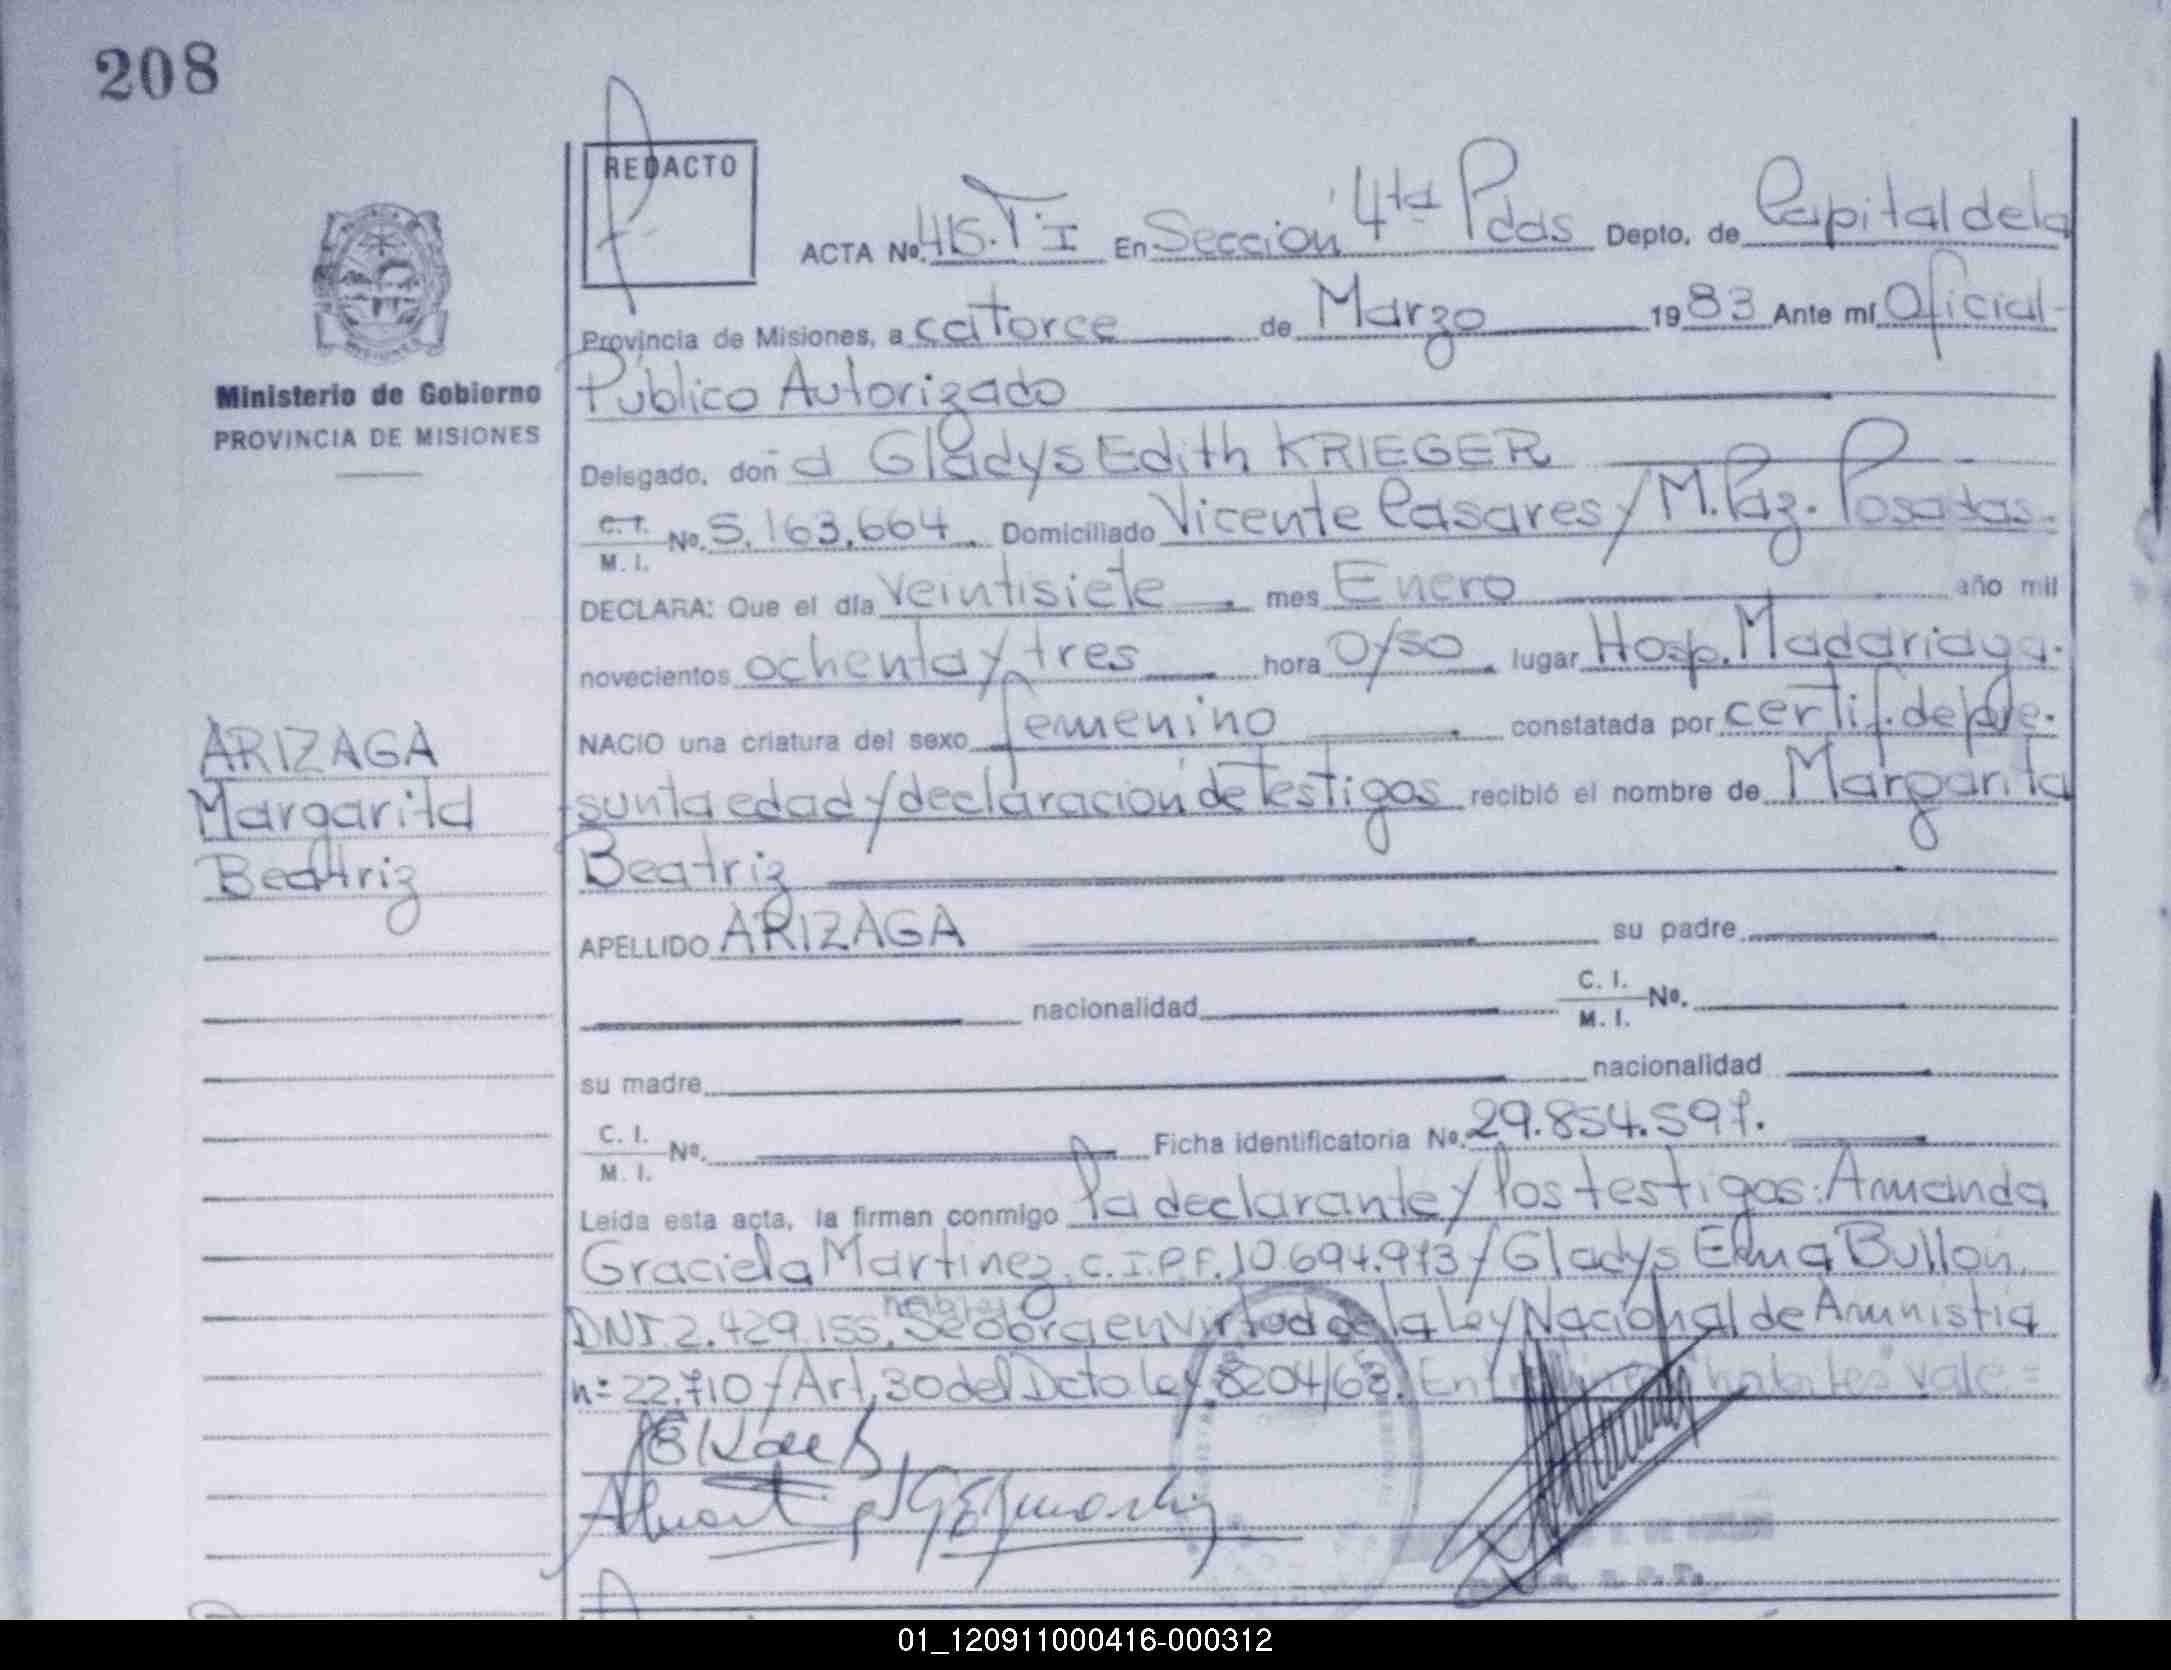 208
REDACTO
ACTA Nº. 415. Tº I En Sección 4ta Pdas Depto. de Capital de la
Provincia de Misiones, a catorce de Marzo 1983 Ante mí Oficial
Público Autorizado
Ministerio de Gobierno
PROVINCIA DE MISIONES
Delegado, don a Gladys Edith KRIEGER
C. I.
M. I. No. 5.163.664. Domiciliado Vicente Casares y M. Paz. Posadas.
DECLARA: Que el día veintisiete mes Enero año mil
novecientos ochenta y tres hora 0y50 lugar Hosp. Madariaga.
NACIO una criatura del sexo femenino constatada por certif. de pre-
sunta edad y declaración de testigos recibió el nombre de Margarita
Beatriz
ARIZAGA
Margarita
Beatriz
APELLIDO ARIZAGA su padre
nacionalidad C. I.
M. I. No.
su madre nacionalidad
C. I.
M. I. No. Ficha identificatoria No. 29.854.597.
Leida esta acta, la firman conmigo la declarante y los testigos: Amanda
Graciela Martinez, C.I.P.F. 10.694.973 y Gladys Elma Bullon
DNI. 2.429.155. Se obra en virtud de la Ley Nacional de Amnistia
nº 22.710 y Art. 30 del Dcto Ley 8204/63. vale =
01_120911000416-000312